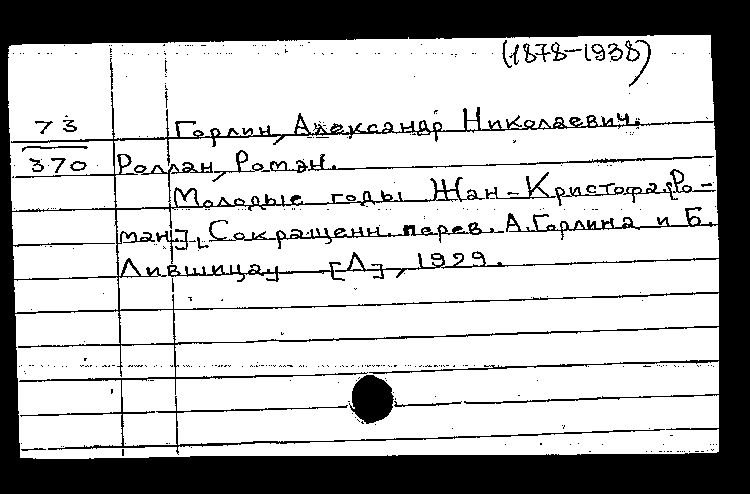 (1878-1938)
73 Горлин, Александр Николаевич.
370 Роллан, Ромэн.
Молодые годы Жан-Кристофа [Ро-
ман]. Сокращенн. перев. А. Горлина и Б.
Лившица. [Л], 1929.